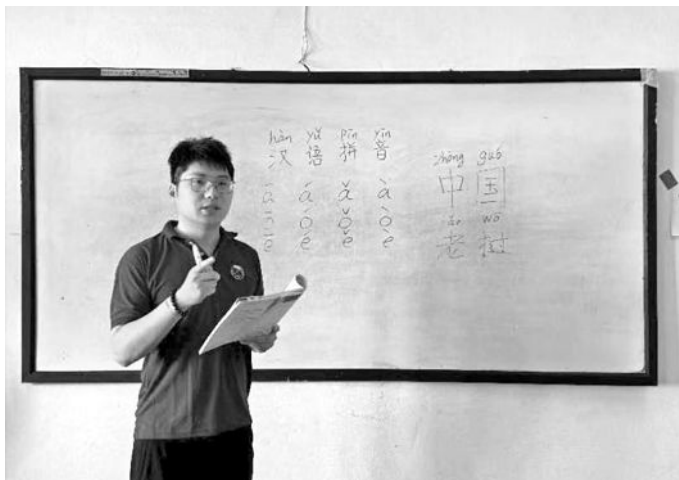 hàn yǔ pīn yīn
汉 语 拼 音
ā á ǎ à
ō ó ǒ ò
ē é ě è
zhōng guó
中 国
老 树